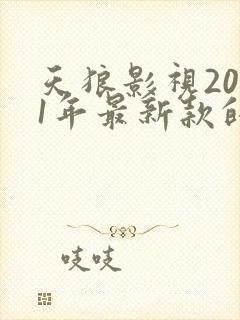 天狼影視20
1年最新款的
吱吱